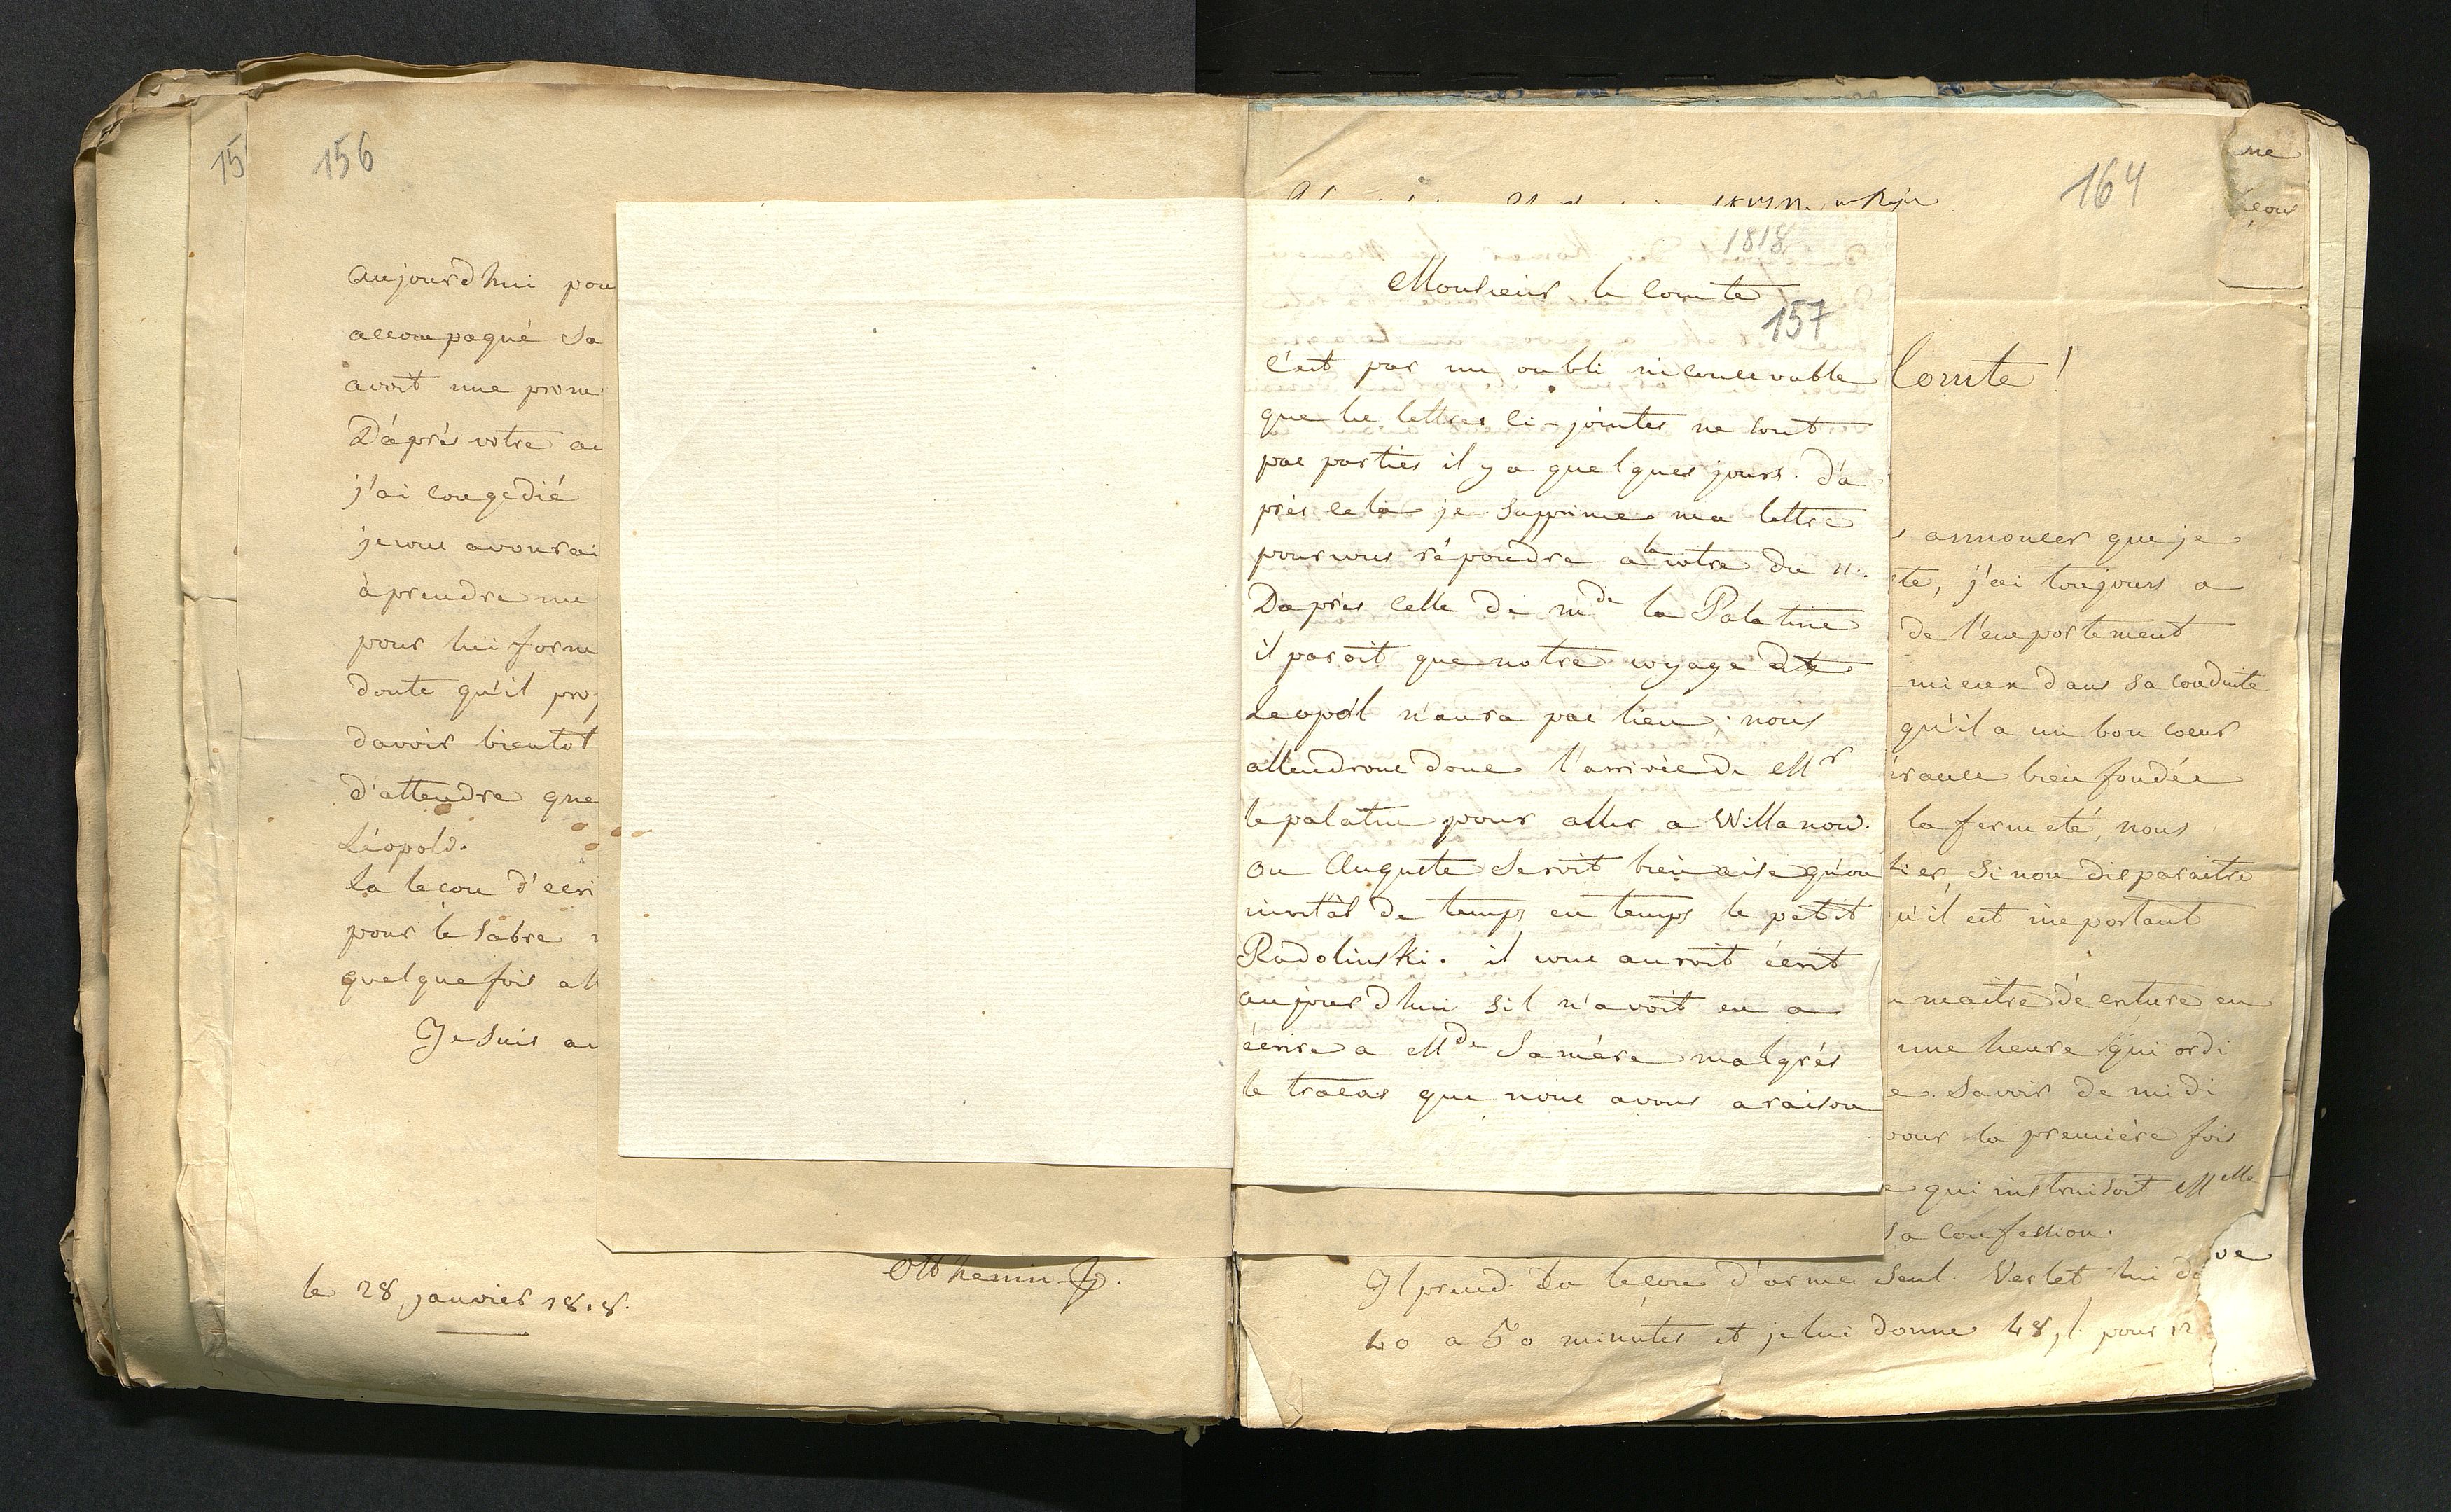 15
156
aujourd'hui pou
accompagné sa
avoit une prom
D'après votre au
j'ai congedié
je vous avourai
à prendre un
pour lui form
doute qu'il pro
davoir bientot
d'attendre que
Léopold.
La leçon d'ecri
pour le sabre
quelque fois al
Je suis au
le 28 janvier 1818.
1818
Monsieur le Comte
157
c'est par un oubli inconcevable
que les lettres ci-jointes ne sont
pas parties il y a quelques jours. d'a
près cela je supprime ma lettre
pour vous répondre a la votre du 11.
Daprès celle de mde la Palatine
il paroit que notre voyage de
Leopol n'aura pas lieu; nous
attendrons donc l'arrivée de Mr
le palatin pour aller a Willanow.
ou Auguste seroit bien aise qu'on
invitât de temps en temps le petit
Radolinski. il vous auroit écrit
aujourd'hui sil n'avoit eu a
écrire a Mde sa mére malgrés
le tracas que nous avons a raison
164
me
Comte!
s annoncer que je
te, j'ai toujours a
de l'emportement
mieux dans sa conduite
qu'il a un bon coeur
érance bien fondée
la fermeté, nous
tier, sinon disparaitre
u'il est important
maitre d'écriture en
une heure qui ordi
e. Savoir de midi
pour la première fois
e qui instruisoit Melle
sa confession.
Il prend la leçon d'arme seul. Verlet lui do
40 a 50 minutes et je lui donne 48, l. pour 12